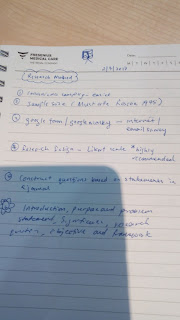 FRESENIUS
MEDICAL CARE
Date
M T W T F S S
Research Method
① convenience sampling - easier
② Sample size (Must cite fuison
③ google form / google survey - internet /
email survey
④ research design - Likert scale * highly
recommended
⑤ Construct questions based on statements in
journal
⑥ Introduction, purpose and problem
statement, significance, research
questions, objective and framework